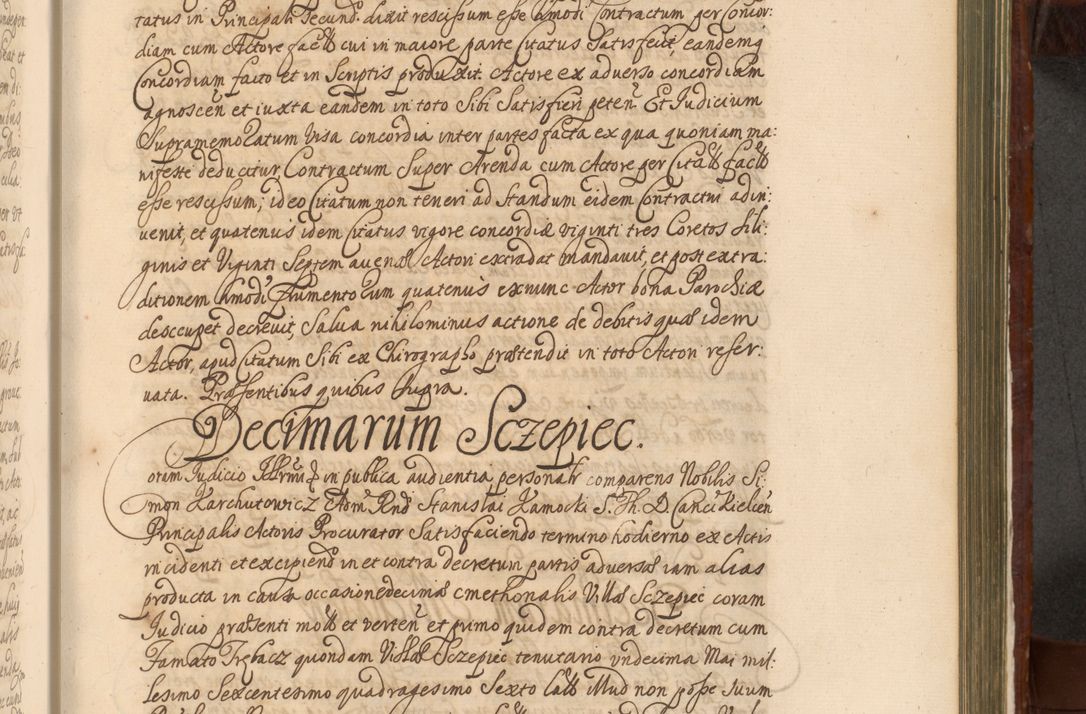 tatus in Principali Secund. dixit rescissum esse hmõdi Contractum per Concor:
diam cum Actore factã cui in maiore parte Citatus Satisfecit eandemq
Concordiam facto et in Scriptis produxit. Actore ex adverso concordiam
agnoscen et iuxta eandem in toto Sibi Satisfieri peten. Et Judicium
Supramemoratum Visa concordia inter partes facta ex qua quoniam ma:
nifeste deducitur, Contractum Super Arenda cum Actore per Citatũ factũ
esse rescissum; ideo Citatum non teneri ad Standum eidem Contractui adin:
uenit, et quatenus idem Citatus vigore concordiæ viginti tres Coretos Sili:
ginis et Viginti Septem auenæ Actori extradat mandauit, et post extra:
ditionem hmõdi frumentorum quatenus exnunc Actor bona Parochiæ
desoccupet decrevit, Salua nihilominus actione de debitis quas idem
Actor, apud Citatum Sibi ex Chirographo prætendit in toto Actori reser:
uata. Præsentibus quibus Supra.
Decimarum Sczepiec.
oram Judicio in publica audientia personalr comparens Nobilis Si:
mon Karchutowicz Adm Rndi Stanislai Kamocki S. Th. D. Canci Kielcen
Principalis Actoris Procurator Satisfaciendo termino hodierno ex Actis
incidenti et excipiend in et contra decretum partis adversæ iam alias
producta in causa occasione decimæ cmethonalis Villæ Sczepiec coram
Judicio præsenti motã et verten et primo quidem contra decretum cum
Famato Trębacz quondam Villæ Sczepiec tenutario vndecima Mai mil:
lesimo Sexcentesimo quadragesimo Sexto latũ Illud non posse Suum